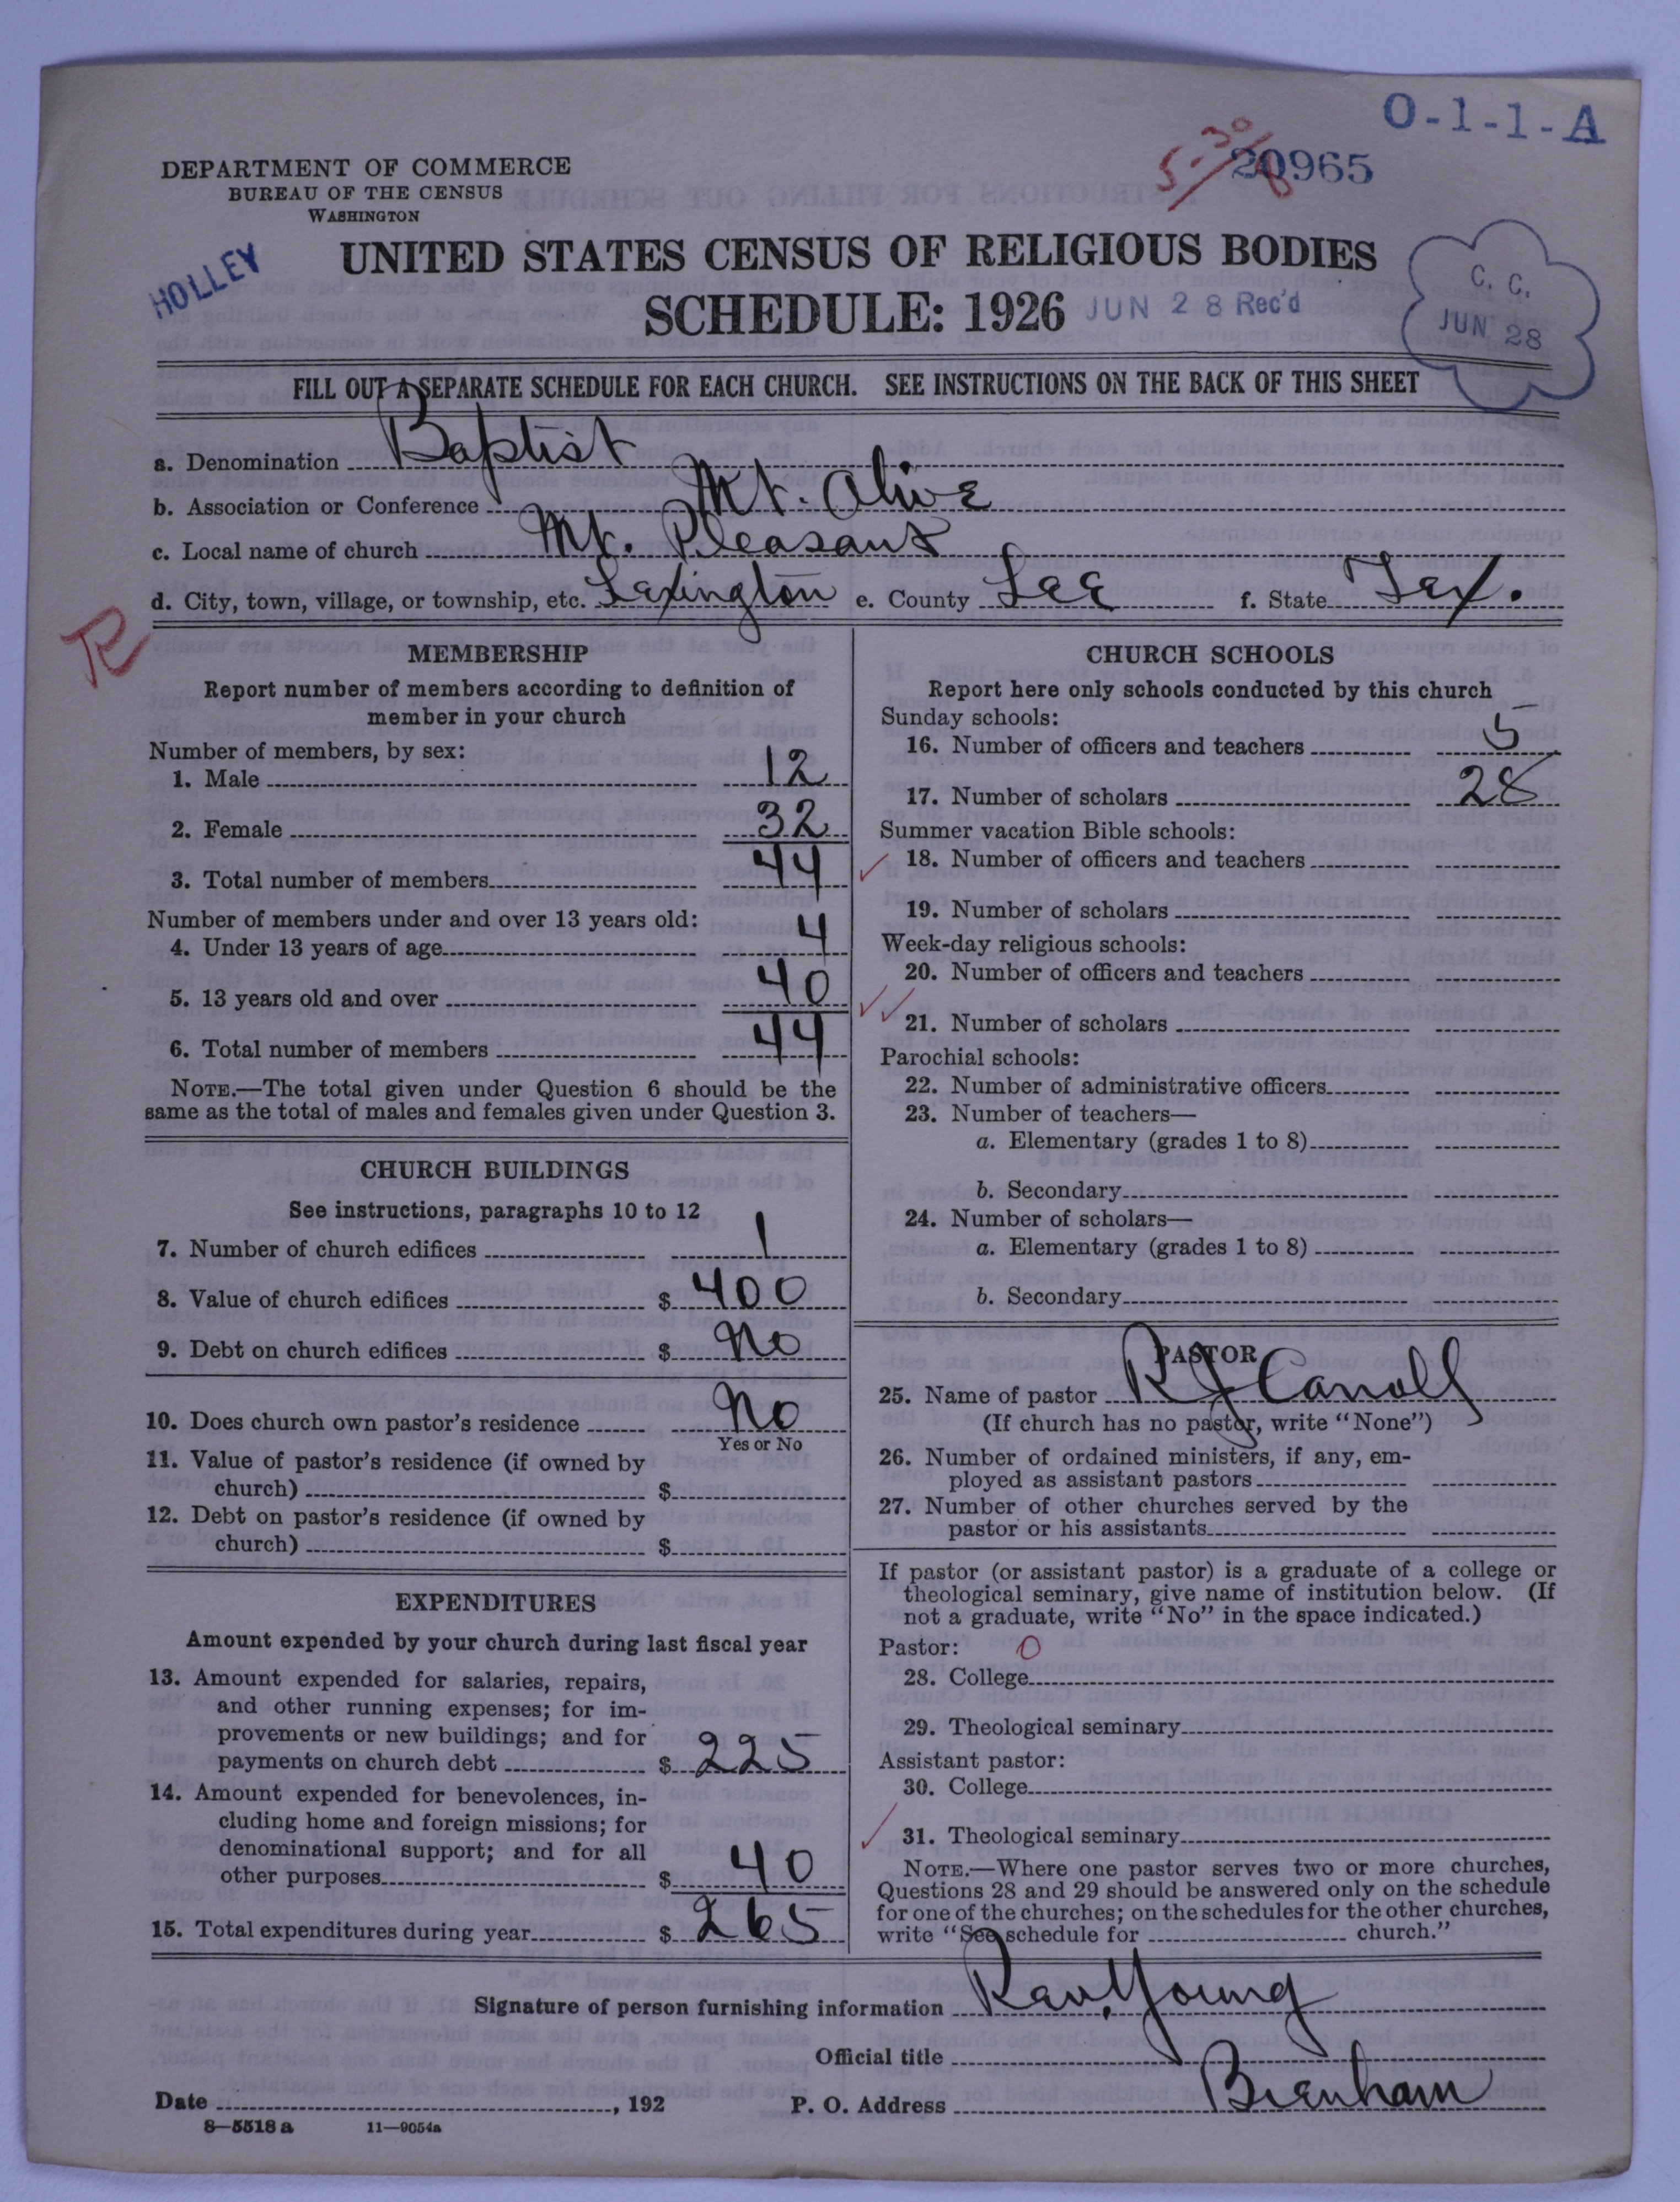 O-1-1-A
5-30
20965
DEPARTMENT OF COMMERCE
BUREAU OF THE CENSUS
WASHINGTON
HOLLEY
UNITED STATES CENSUS OF RELIGIOUS BODIES
SCHEDULE: 1926 JUN 28 Rec'd
C. C.
JUN 28
FILL OUT A SEPARATE SCHEDULE FOR EACH CHURCH. SEE INSTRUCTIONS ON THE BACK OF THIS SHEET
a. Denomination Baptist
b. Association or Conference Mt. Olive
c. Local name of church Mt. Pleasant
d. City, town, village, or township, etc. Lexington e. County Lee f. State Tex.
R
MEMBERSHIP
Report number of members according to definition of
member in your church
Number of members, by sex:
1. Male 12
2. Female 32
3. Total number of members 44
Number of members under and over 13 years old:
4. Under 13 years of age 4
5. 13 years old and over 40
6. Total number of members 44
NOTE.—The total given under Question 6 should be the
same as the total of males and females given under Question 3.
CHURCH BUILDINGS
See instructions, paragraphs 10 to 12
7. Number of church edifices 1
8. Value of church edifices $ 400
9. Debt on church edifices $ No
10. Does church own pastor's residence No
Yes or No
11. Value of pastor's residence (if owned by
church) $
12. Debt on pastor's residence (if owned by
church) $
EXPENDITURES
Amount expended by your church during last fiscal year
13. Amount expended for salaries, repairs,
and other running expenses; for im-
provements or new buildings; and for
payments on church debt $ 225
14. Amount expended for benevolences, in-
cluding home and foreign missions; for
denominational support; and for all
other purposes $ 40
15. Total expenditures during year $ 265
CHURCH SCHOOLS
Report here only schools conducted by this church
Sunday schools:
16. Number of officers and teachers 5
17. Number of scholars 28
Summer vacation Bible schools:
18. Number of officers and teachers
19. Number of scholars
Week-day religious schools:
20. Number of officers and teachers
21. Number of scholars
Parochial schools:
22. Number of administrative officers
23. Number of teachers—
a. Elementary (grades 1 to 8)
b. Secondary
24. Number of scholars—
a. Elementary (grades 1 to 8)
b. Secondary
PASTOR
25. Name of pastor R J Caroll
(If church has no pastor, write "None")
26. Number of ordained ministers, if any, em-
ployed as assistant pastors
27. Number of other churches served by the
pastor or his assistants
If pastor (or assistant pastor) is a graduate of a college or
theological seminary, give name of institution below. (If
not a graduate, write "No" in the space indicated.)
Pastor: 0
28. College
29. Theological seminary
Assistant pastor:
30. College
31. Theological seminary
NOTE.—Where one pastor serves two or more churches,
Questions 28 and 29 should be answered only on the schedule
for one of the churches; on the schedules for the other churches,
write "See schedule for church."
Signature of person furnishing information Rev. Young
Official title
Date , 192 P. O. Address Brenham
8—5518 a 11—9054a